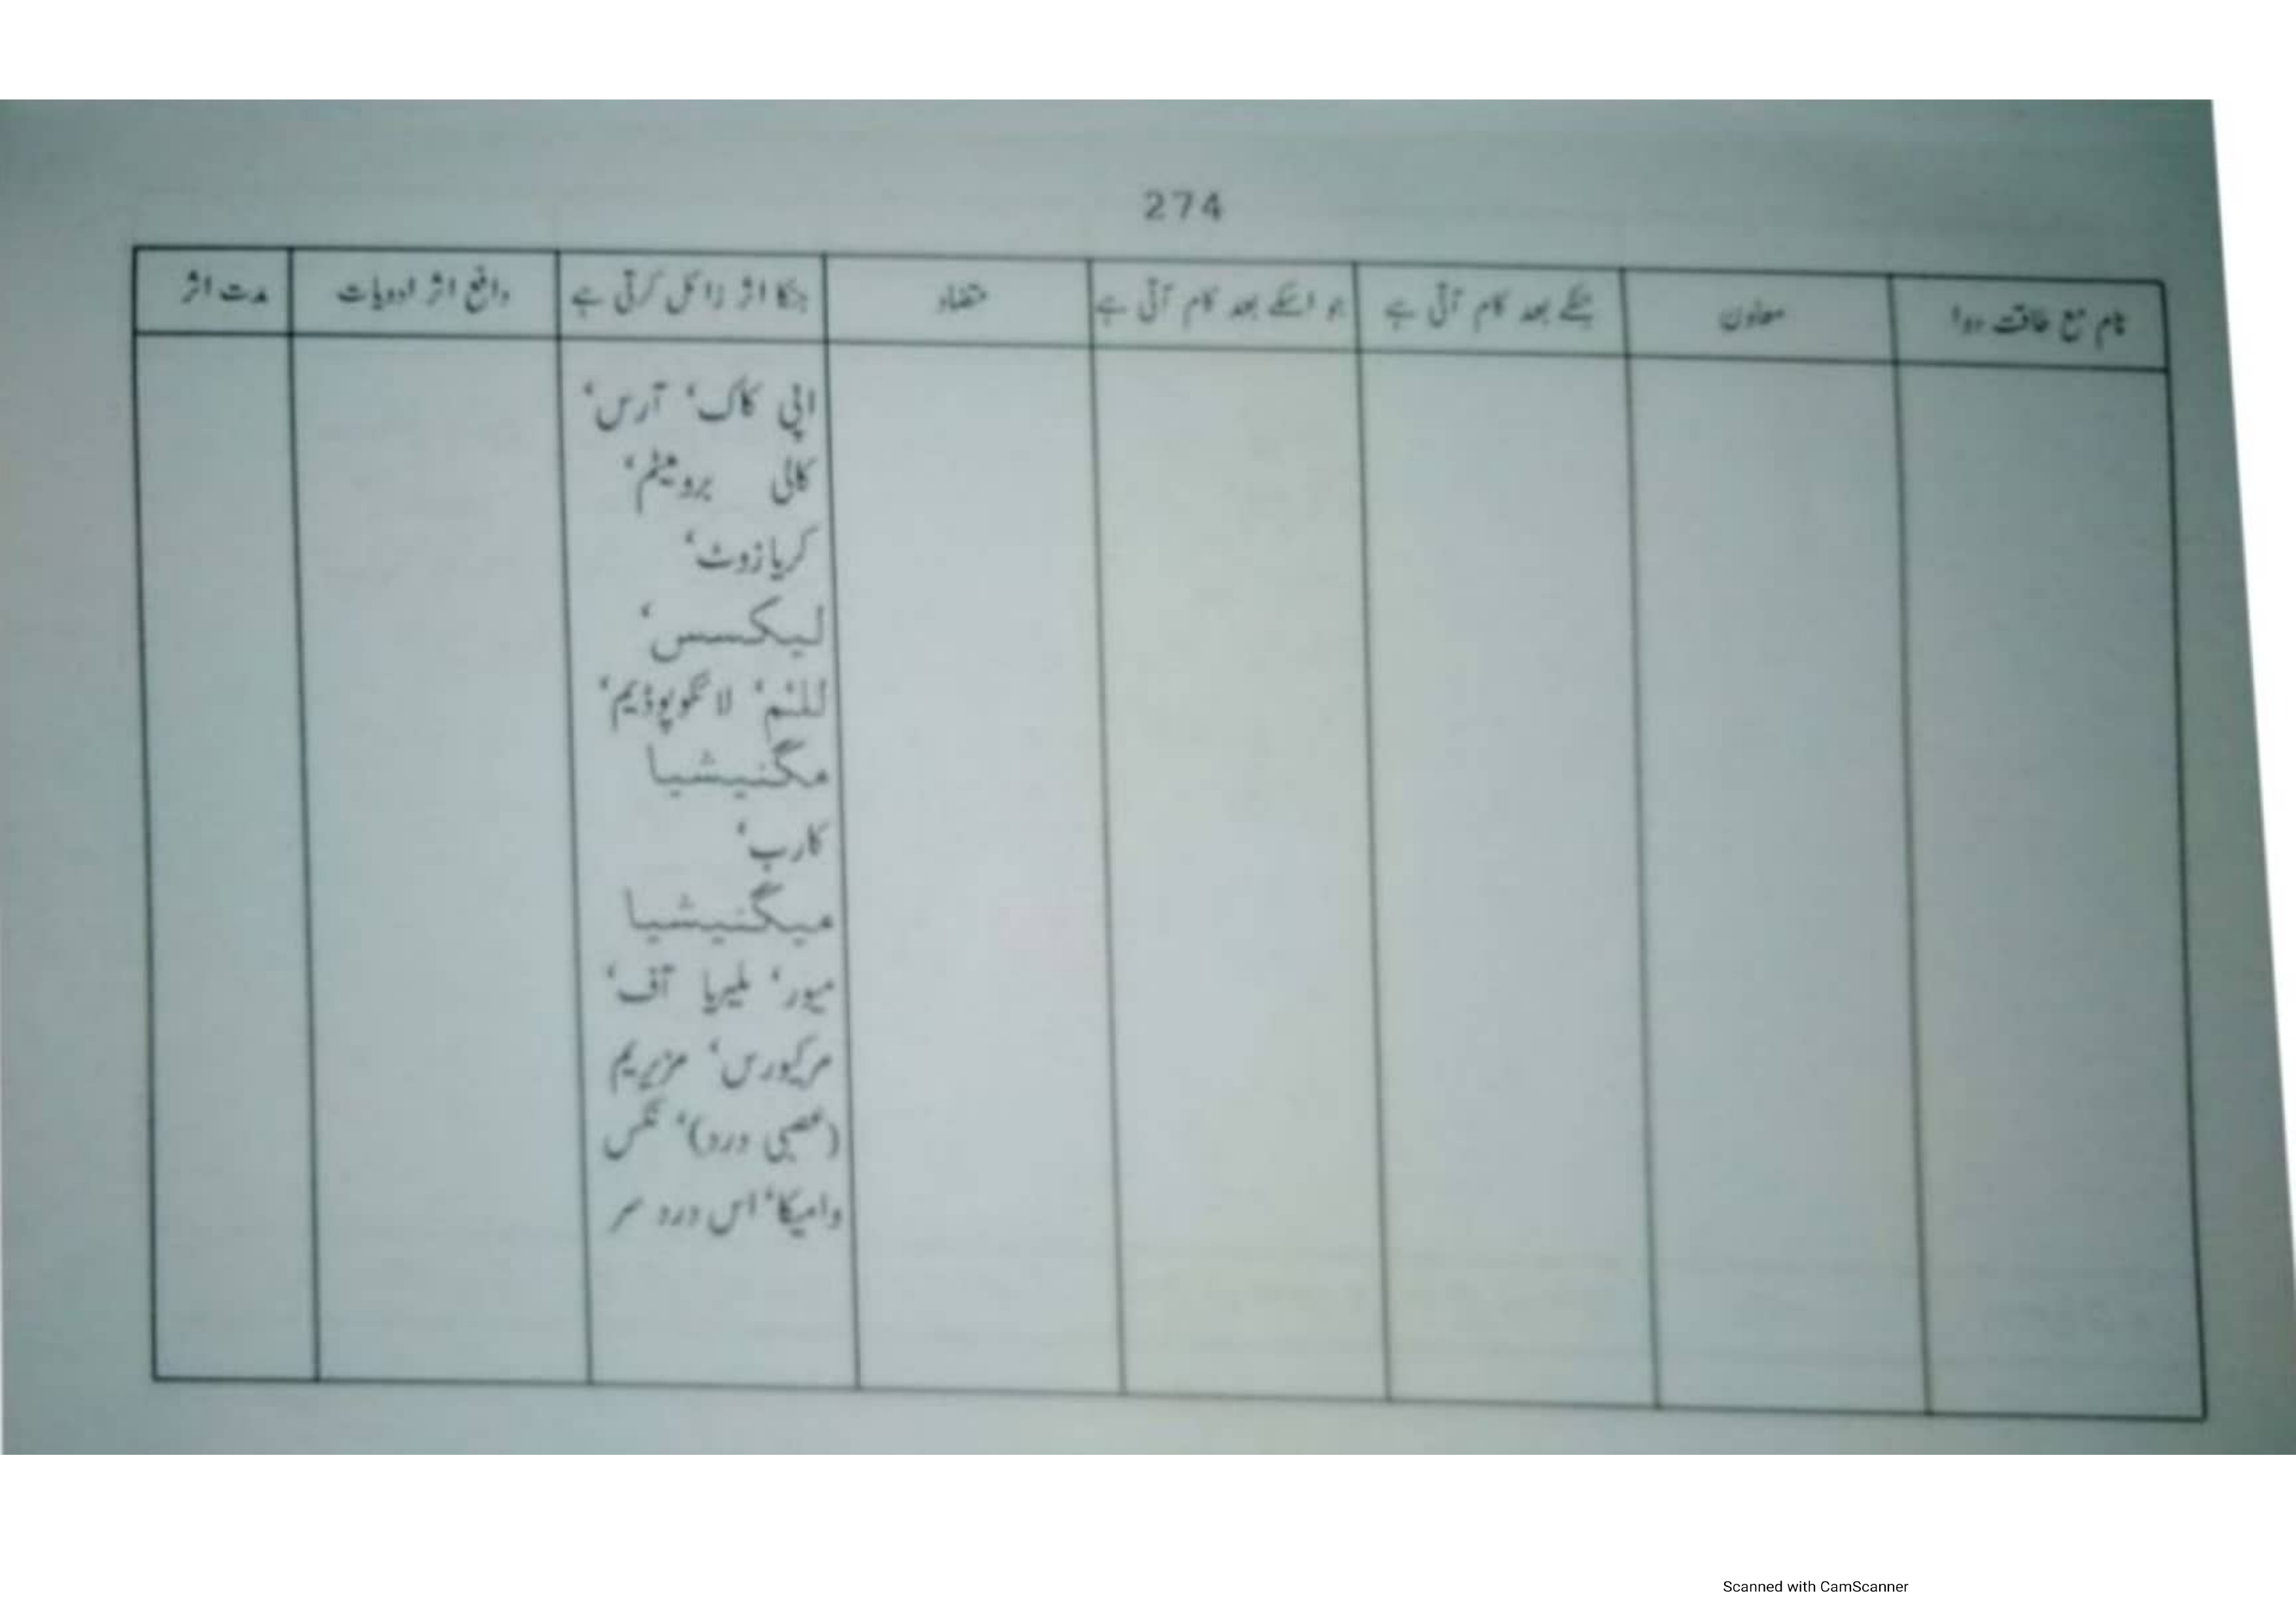 274
نام مع طاقت دوا
معاون
جسکے بعد کام آتی ہے
جو اسکے بعد کام آتی ہے
متضاد
جنکا اثر زائل کرتی ہے
دافع اثر ادویات
مدت اثر
اپی کاک، آرس،
کالی برومیٹم،
کریازوٹ،
لیکسس،
للئم، لائکوپوڈیم،
مگنیشیا
کارب،
میگنیشیا
میور، ملیریا آف،
مرکیورس، مزیریم
(عصبی درد)، نکس
وامیکا، اس درد سر
Scanned with CamScanner